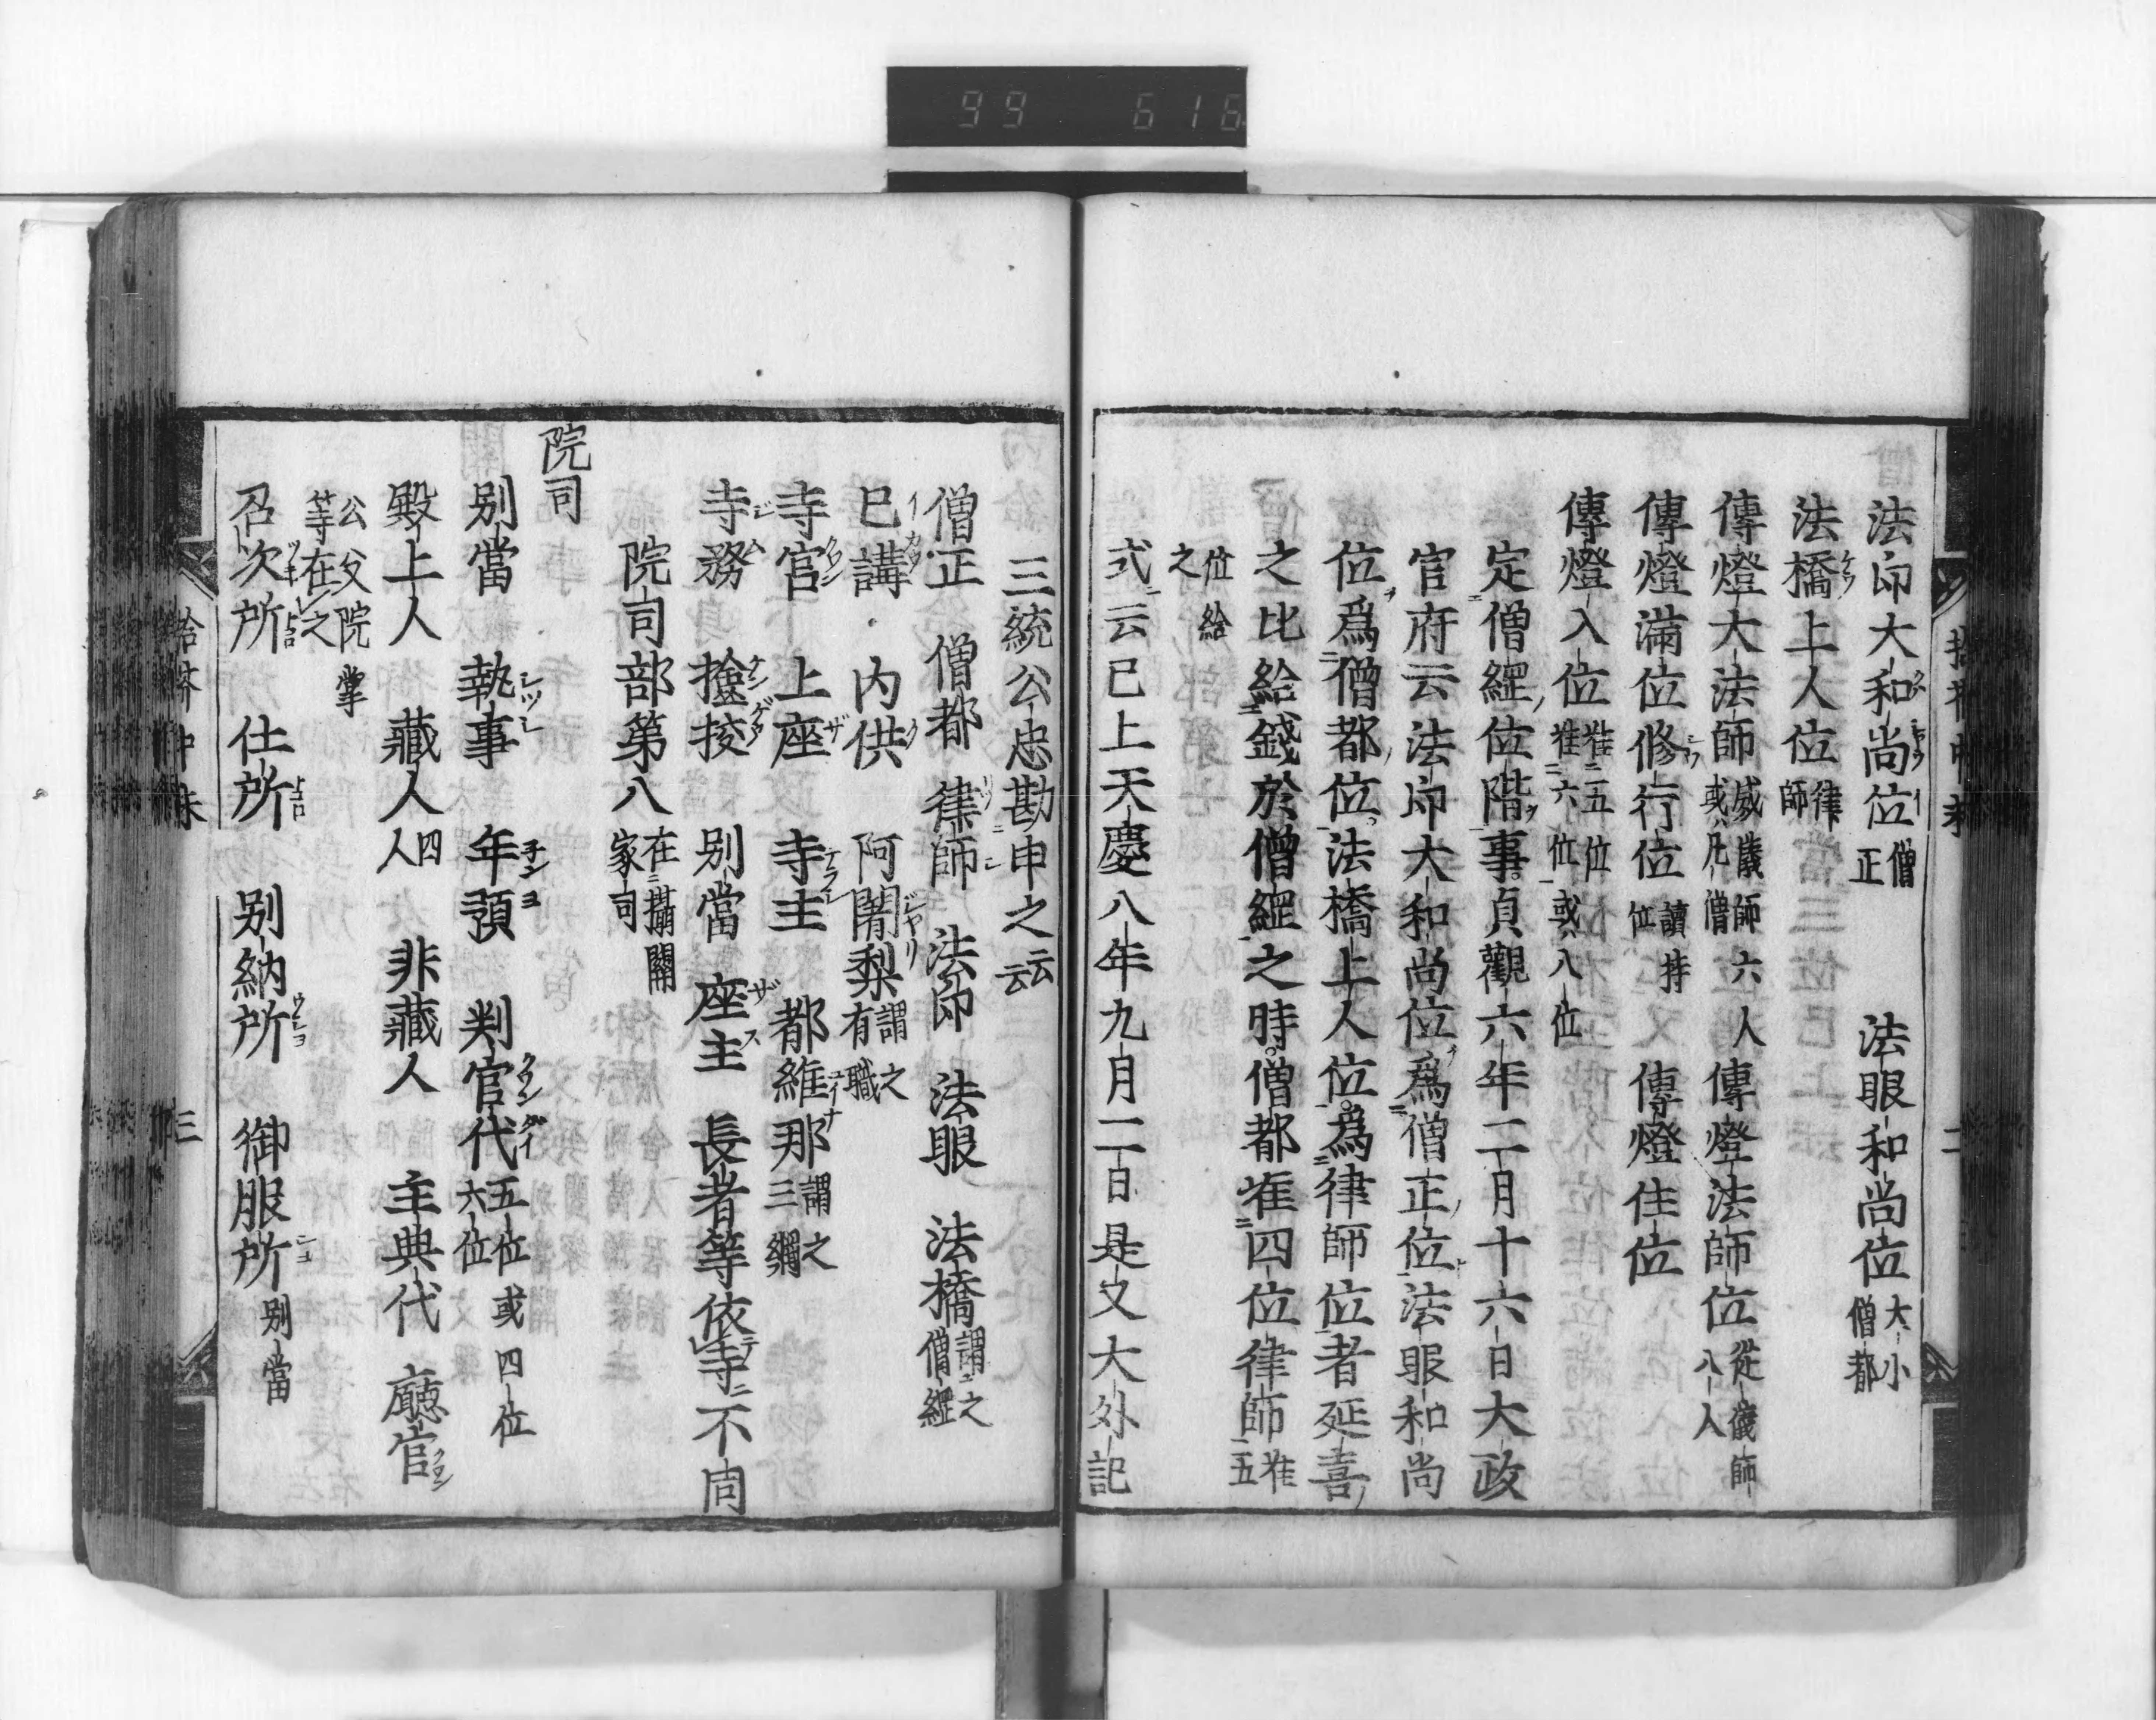 99 616
法印大和尚位僧正 法眼和尚位大小僧都
法橋上人位律師
傳燈大法師威儀師六人或凡僧 傳燈法師位從儀師八人
傳燈滿位修行位讀持位 傳燈住位
傳燈入位准五位准六位或八位
定僧綱位階事貞觀六年二月十六日大政
官府云法印大和尚位爲僧正位法眼和尚
位爲僧都位法橋上人位爲律師位者延喜
之比給錢於僧綱之時僧都准四位律師准五
位給之
式云已上天慶八年九月二日是又大外記
三統公忠勘申之云云
僧正 僧都 律師 法印 法眼 法橋謂之僧綱
已講 内供 阿闍梨謂之有職
寺官 上座 寺主 都維那謂之三綱
寺務 撿挍 別當 座主 長者等依寺不同
院司部第八在攝關家司
院司
別當 執事 年預 判官代五位六位或四位
殿上人 藏人四人 非藏人 主典代 廳官
公文院掌等在之
召次所 仕所 別納所 御服所別當
拾芥中末 二
拾芥中末 三